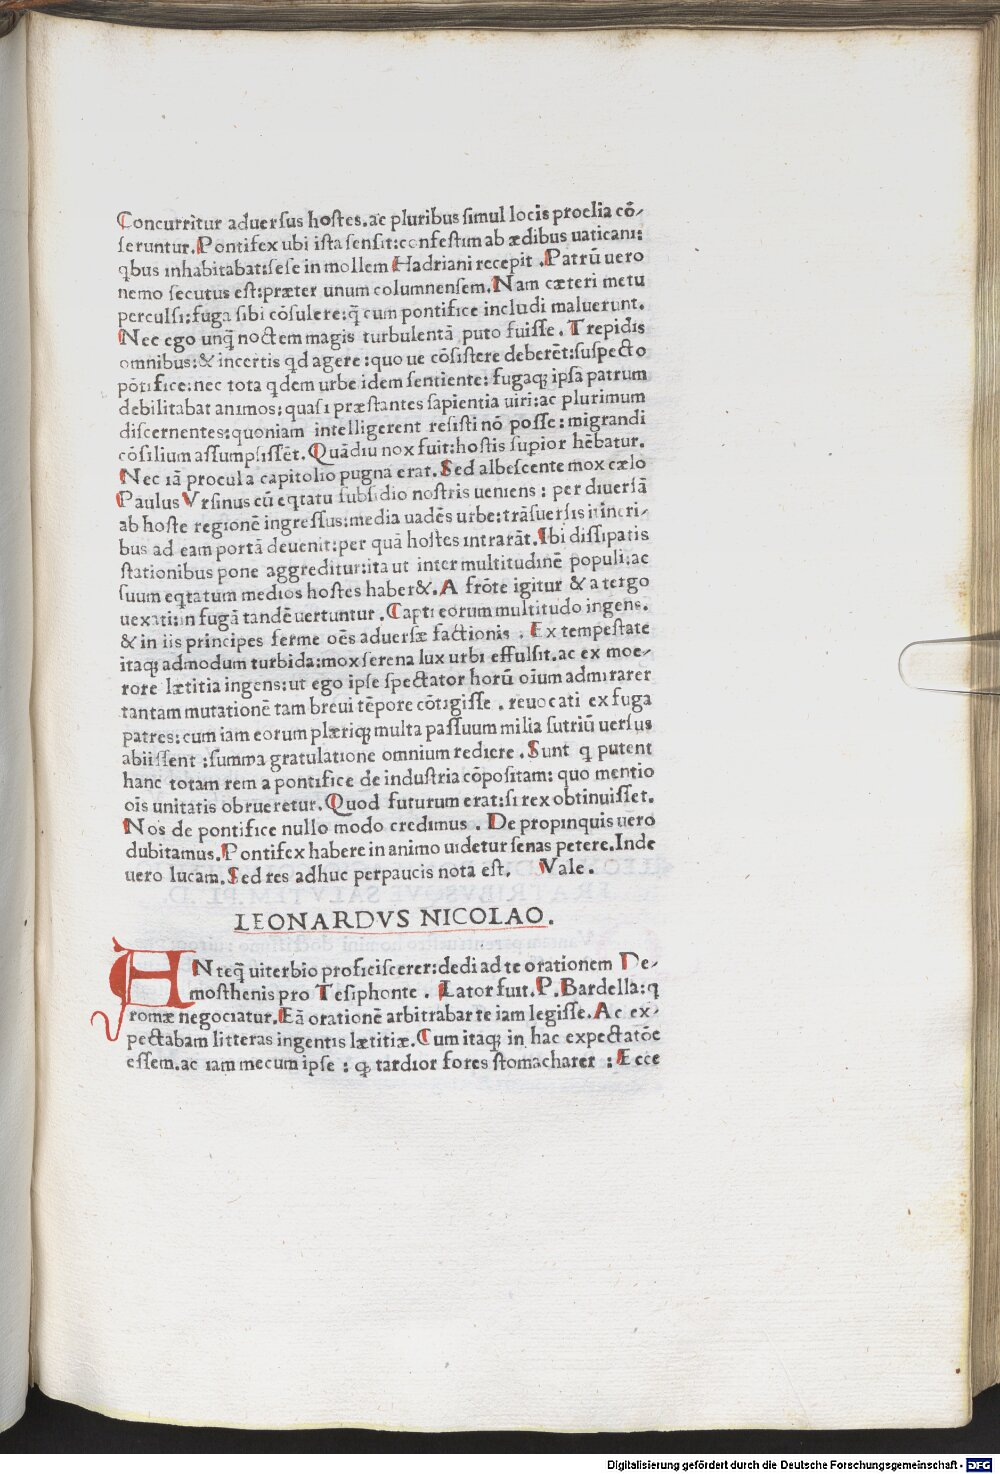 Concurritur aduerſus hoſtes.ac pluribus ſimul locis proelia cō-
ſeruntur.Pontifex ubi iſta ſenſit:confeſtim ab ædibus uaticani:
qbus inhabitabat:ſeſe in mollem Hadriani recepit .Patrū uero
nemo ſecutus eſt:præter unum columnenſem.Nam cæteri metu
perculſi:fuga ſibi cōſulere:q̄ cum pontifice includi maluerunt.
Nec ego unq̄ noctem magis turbulentā puto fuiſſe. Trepidis
omnibus:& incertis qd agere:quo ue cōſiſtere deberēt:ſuſpecto
pōtifice:nec tota qdem urbe idem ſentiente: fugaqꝫ ipſa patrum
debilitabat animos:quaſi præſtantes ſapientia uiri:ac plurimum
diſcernentes:quoniam intelligerent reſiſti nō poſſe:migrandi
cōſilium aſſumpſiſſēt.Quādiu nox fuit:hoſtis ſupior hēbatur.
Nec iā procul a capitolio pugna erat.Sed albeſcente mox cælo
Paulus Vrſinus cū eqtatu ſubſidio noſtris ueniens: per diuerſā
ab hoſte regionē ingreſſus:media uadēs urbe:trāſuerſis itineri-
bus ad eam portā deuenit:per quā hoſtes intrarāt.Ibi diſſipatis
ſtationibus pone aggreditur:ita ut inter multitudinē populi:ac
ſuum eqtatum medios hoſtes haber&.A frōte igitur & a tergo
uexati:in fugā tandē uertuntur .Capti eorum multitudo ingens.
& in iis principes ferme oēs aduerſæ factionis . Ex tempeſtate
itaqꝫ admodum turbida:mox ſerena lux urbi effulſit.ac ex moe-
rore lætitia ingens:ut ego ipſe ſpectator horū oīum admirarer
tantam mutationē tam breui tēpore cōtigiſſe . reuocati ex fuga
patres:cum iam eorum plæriqꝫ multa paſſuum milia ſutriū uerſus
abiiſſent :ſumma gratulatione omnium rediere .Sunt q putent
hanc totam rem a pontifice de induſtria cōpoſitam: quo mentio
oīs unitatis obrueretur.Quod futurum erat:ſi rex obtinuiſſet.
Nos de pontifice nullo modo credimus . De propinquis uero
dubitamus.Pontifex habere in animo uidetur ſenas petere.Inde
uero lucam.Sed res adhuc perpaucis nota eſt. Vale.
LEONARDVS NICOLAO.
AN teq̄ uiterbio proficiſcerer:dedi ad te orationem De-
moſthenis pro Teſiphonte . Lator fuit.P.Bardella:q
romæ negociatur.Eā orationē arbitrabar te iam legiſſe.Ac ex-
pectabam litteras ingentis lætitiæ.Cum itaqꝫ in hac expectatōe
eſſem.ac iam mecum ipſe : qꝫ tardior fores ſtomacharer :Ecce
Digitalisierung gefördert durch die Deutsche Forschungsgemeinschaft - DFG